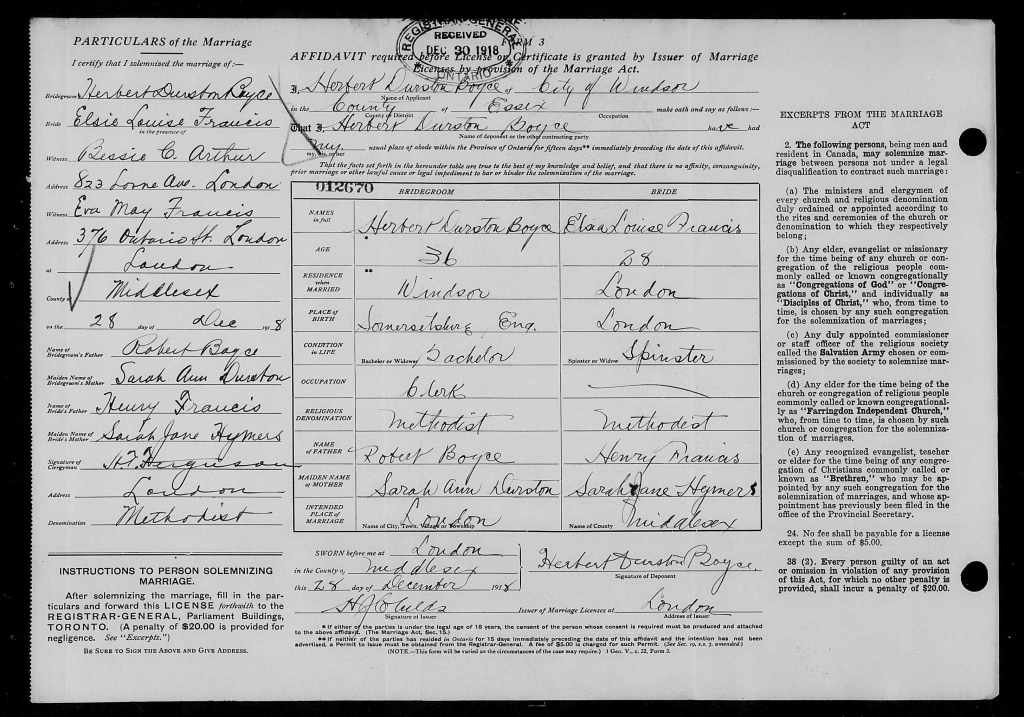 PARTICULARS of the Marriage
I certify that I solemnised the marriage of:—
Bridegroom Herbert Durston Boyce
Bride Elsie Louise Francis
in the presence of
Witness Bessie C. Arthur
Address 823 Lorne Ave. London
Witness Eva May Francis
Address 376 Ontario St. London
at London
County Middlesex
on the 28 day of Dec 1918
Name of Bridegroom's Father Robert Boyce
Maiden Name of Bridegroom's Mother Sarah Ann Durston
Name of Bride's Father Henry Francis
Maiden Name of Bride's Mother Sarah Jane Hymers
Signature of Clergyman Ferguson
Address London
Denomination Methodist
INSTRUCTIONS TO PERSON SOLEMNIZING
MARRIAGE.
After solemnizing the marriage, fill in the par-
ticulars and forward this LICENSE forthwith to the
REGISTRAR-GENERAL, Parliament Buildings,
TORONTO. (A penalty of $20.00 is provided for
negligence. See "Excerpts.")
BE SURE TO SIGN THE ABOVE AND GIVE ADDRESS.
REGISTRAR GENERAL
RECEIVED
DEC 30 1918
ONTARIO
FORM 3
AFFIDAVIT required before License or Certificate is granted by Issuer of Marriage
Licenses by provision of the Marriage Act.
I, Herbert Durston Boyce of City of Windsor
Name of Applicant
in the County of Essex make oath and say as follows:—
County or District Occupation
That I, Herbert Durston Boyce have had
Name of deponent or the other contracting party
my usual place of abode within the Province of Ontario for fifteen days** immediately preceding the date of this affidavit.
my, his, or her
That the facts set forth in the hereunder table are true to the best of my knowledge and belief, and that there is no affinity, consanguinity,
prior marriage or other lawful cause or legal impediment to bar or hinder the solemnization of the marriage.
012670 BRIDEGROOM BRIDE
NAMES in full Herbert Durston Boyce Elsa Louise Francis
AGE 36 28
RESIDENCE when MARRIED Windsor London
PLACE of BIRTH Somersetshire, Eng. London
CONDITION in LIFE Bachelor or Widower Bachelor Spinster or Widow Spinster
OCCUPATION Clerk —
RELIGIOUS DENOMINATION Methodist Methodist
NAME of FATHER Robert Boyce Henry Francis
MAIDEN NAME of MOTHER Sarah Ann Durston Sarah Jane Hymers
INTENDED PLACE of MARRIAGE London Middlesex
Name of City, Town, Village or Township Name of County
SWORN before me at London
in the County of Middlesex
this 28 day of December 1918
Herbert Durston Boyce.
Signature of Deponent
Childs Issuer of Marriage Licenses at London
Signature of Issuer Address of Issuer
* If either of the parties is under the legal age of 18 years, the consent of the person whose consent is required must be produced and attached
to the above affidavit. (The Marriage Act, Sec. 15.)
** If neither of the parties has resided in Ontario for 15 days immediately preceding the date of this affidavit and the intention has not been
advertised, a Permit to issue must be obtained from the Registrar-General. A fee of $5.00 is charged for such Permit. (See Sec. 19, s.s. 7, amended.)
(NOTE.—This form will be varied as the circumstances of the case may require.) 1 Geo. V., c. 32, Form 3.
EXCERPTS FROM THE MARRIAGE
ACT
2. The following persons, being men and
resident in Canada, may solemnize mar-
riage between persons not under a legal
disqualification to contract such marriage:
(a) The ministers and clergymen of
every church and religious denomination
duly ordained or appointed according to
the rites and ceremonies of the church or
denomination to which they respectively
belong;
(b) Any elder, evangelist or missionary
for the time being of any church or con-
gregation of the religious people com-
monly called or known congregationally
as "Congregations of God" or "Congre-
gations of Christ," and individually as
"Disciples of Christ," who, from time to
time, is chosen by any such congregation
for the solemnization of marriages;
(c) Any duly appointed commissioner
or staff officer of the religious society
called the Salvation Army chosen or com-
missioned by the society to solemnize mar-
riages;
(d) Any elder for the time being of the
church or congregation of religious people
commonly called or known congregational-
ly as "Farringdon Independent Church,"
who, from time to time, is chosen by such
church or congregation for the solemniza-
tion of marriages.
(e) Any recognized evangelist, teacher
or elder for the time being of any congre-
gation of Christians commonly called or
known as "Brethren," who may be ap-
pointed by any such congregation for the
solemnization of marriages, and whose ap-
pointment has previously been filed in the
office of the Provincial Secretary.
24. No fee shall be payable for a license
except the sum of $5.00.
38 (2). Every person guilty of an act
or omission in violation of any provision
of this Act, for which no other penalty is
provided, shall incur a penalty of $20.00.